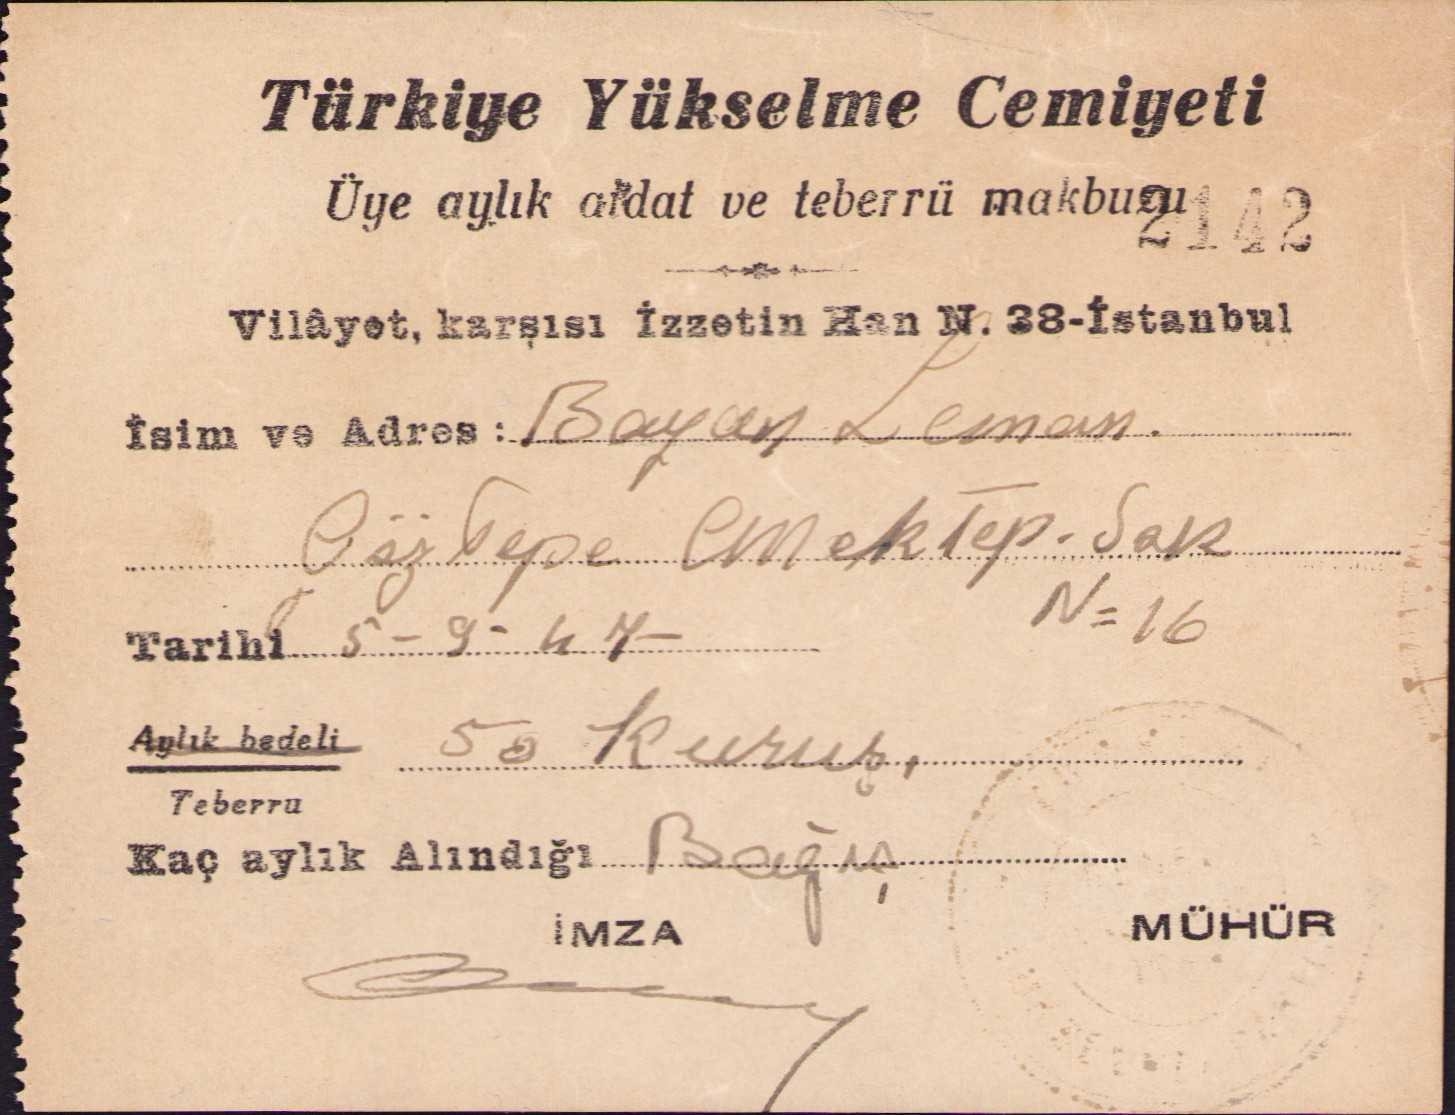 Türkiye Yükselme Cemiyeti
Üye aylık aidat ve teberrü makbuzu
2142
Vilâyet, karşısı İzzetin Han N. 38-İstanbul
İsim ve Adres : Bayan Leman.
Göztepe Mektep. Sok
N= 16
Tarihi 5-9-47-
Aylık bedeli 50 Kuruş,
Teberru
Kaç aylık Alındığı Bağış
İMZA MÜHÜR